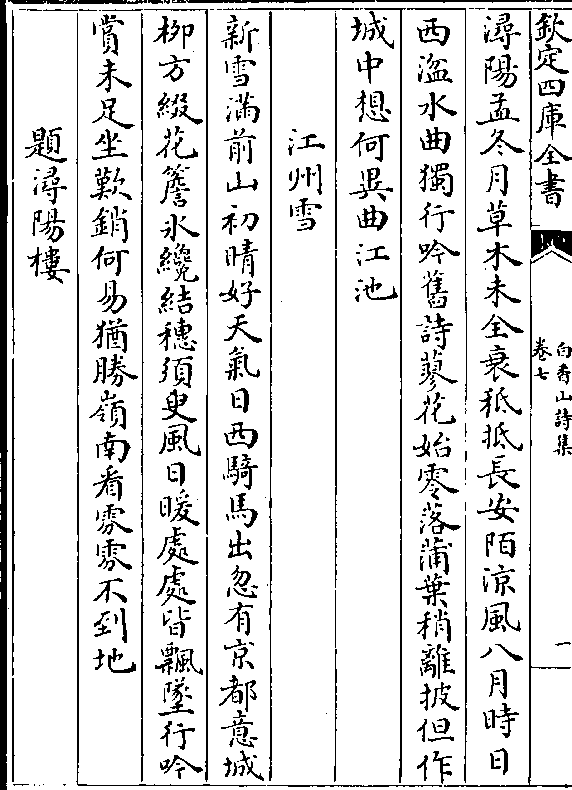 欽定四庫全書
白香山詩集
卷七
一
潯陽孟冬月草木未全衰秪抵長安陌涼風八月時日
西湓水曲獨行吟舊詩蓼花始零落蒲葉稍離披但作
城中想何異曲江池
江州雪
新雪滿前山初晴好天氣日西騎馬出忽有京都意城
柳方綴花簷氷纔結穗須臾風日暖處處皆飄墜行吟
賞未足坐歎銷何易猶勝嶺南看雰雰不到地
題潯陽樓